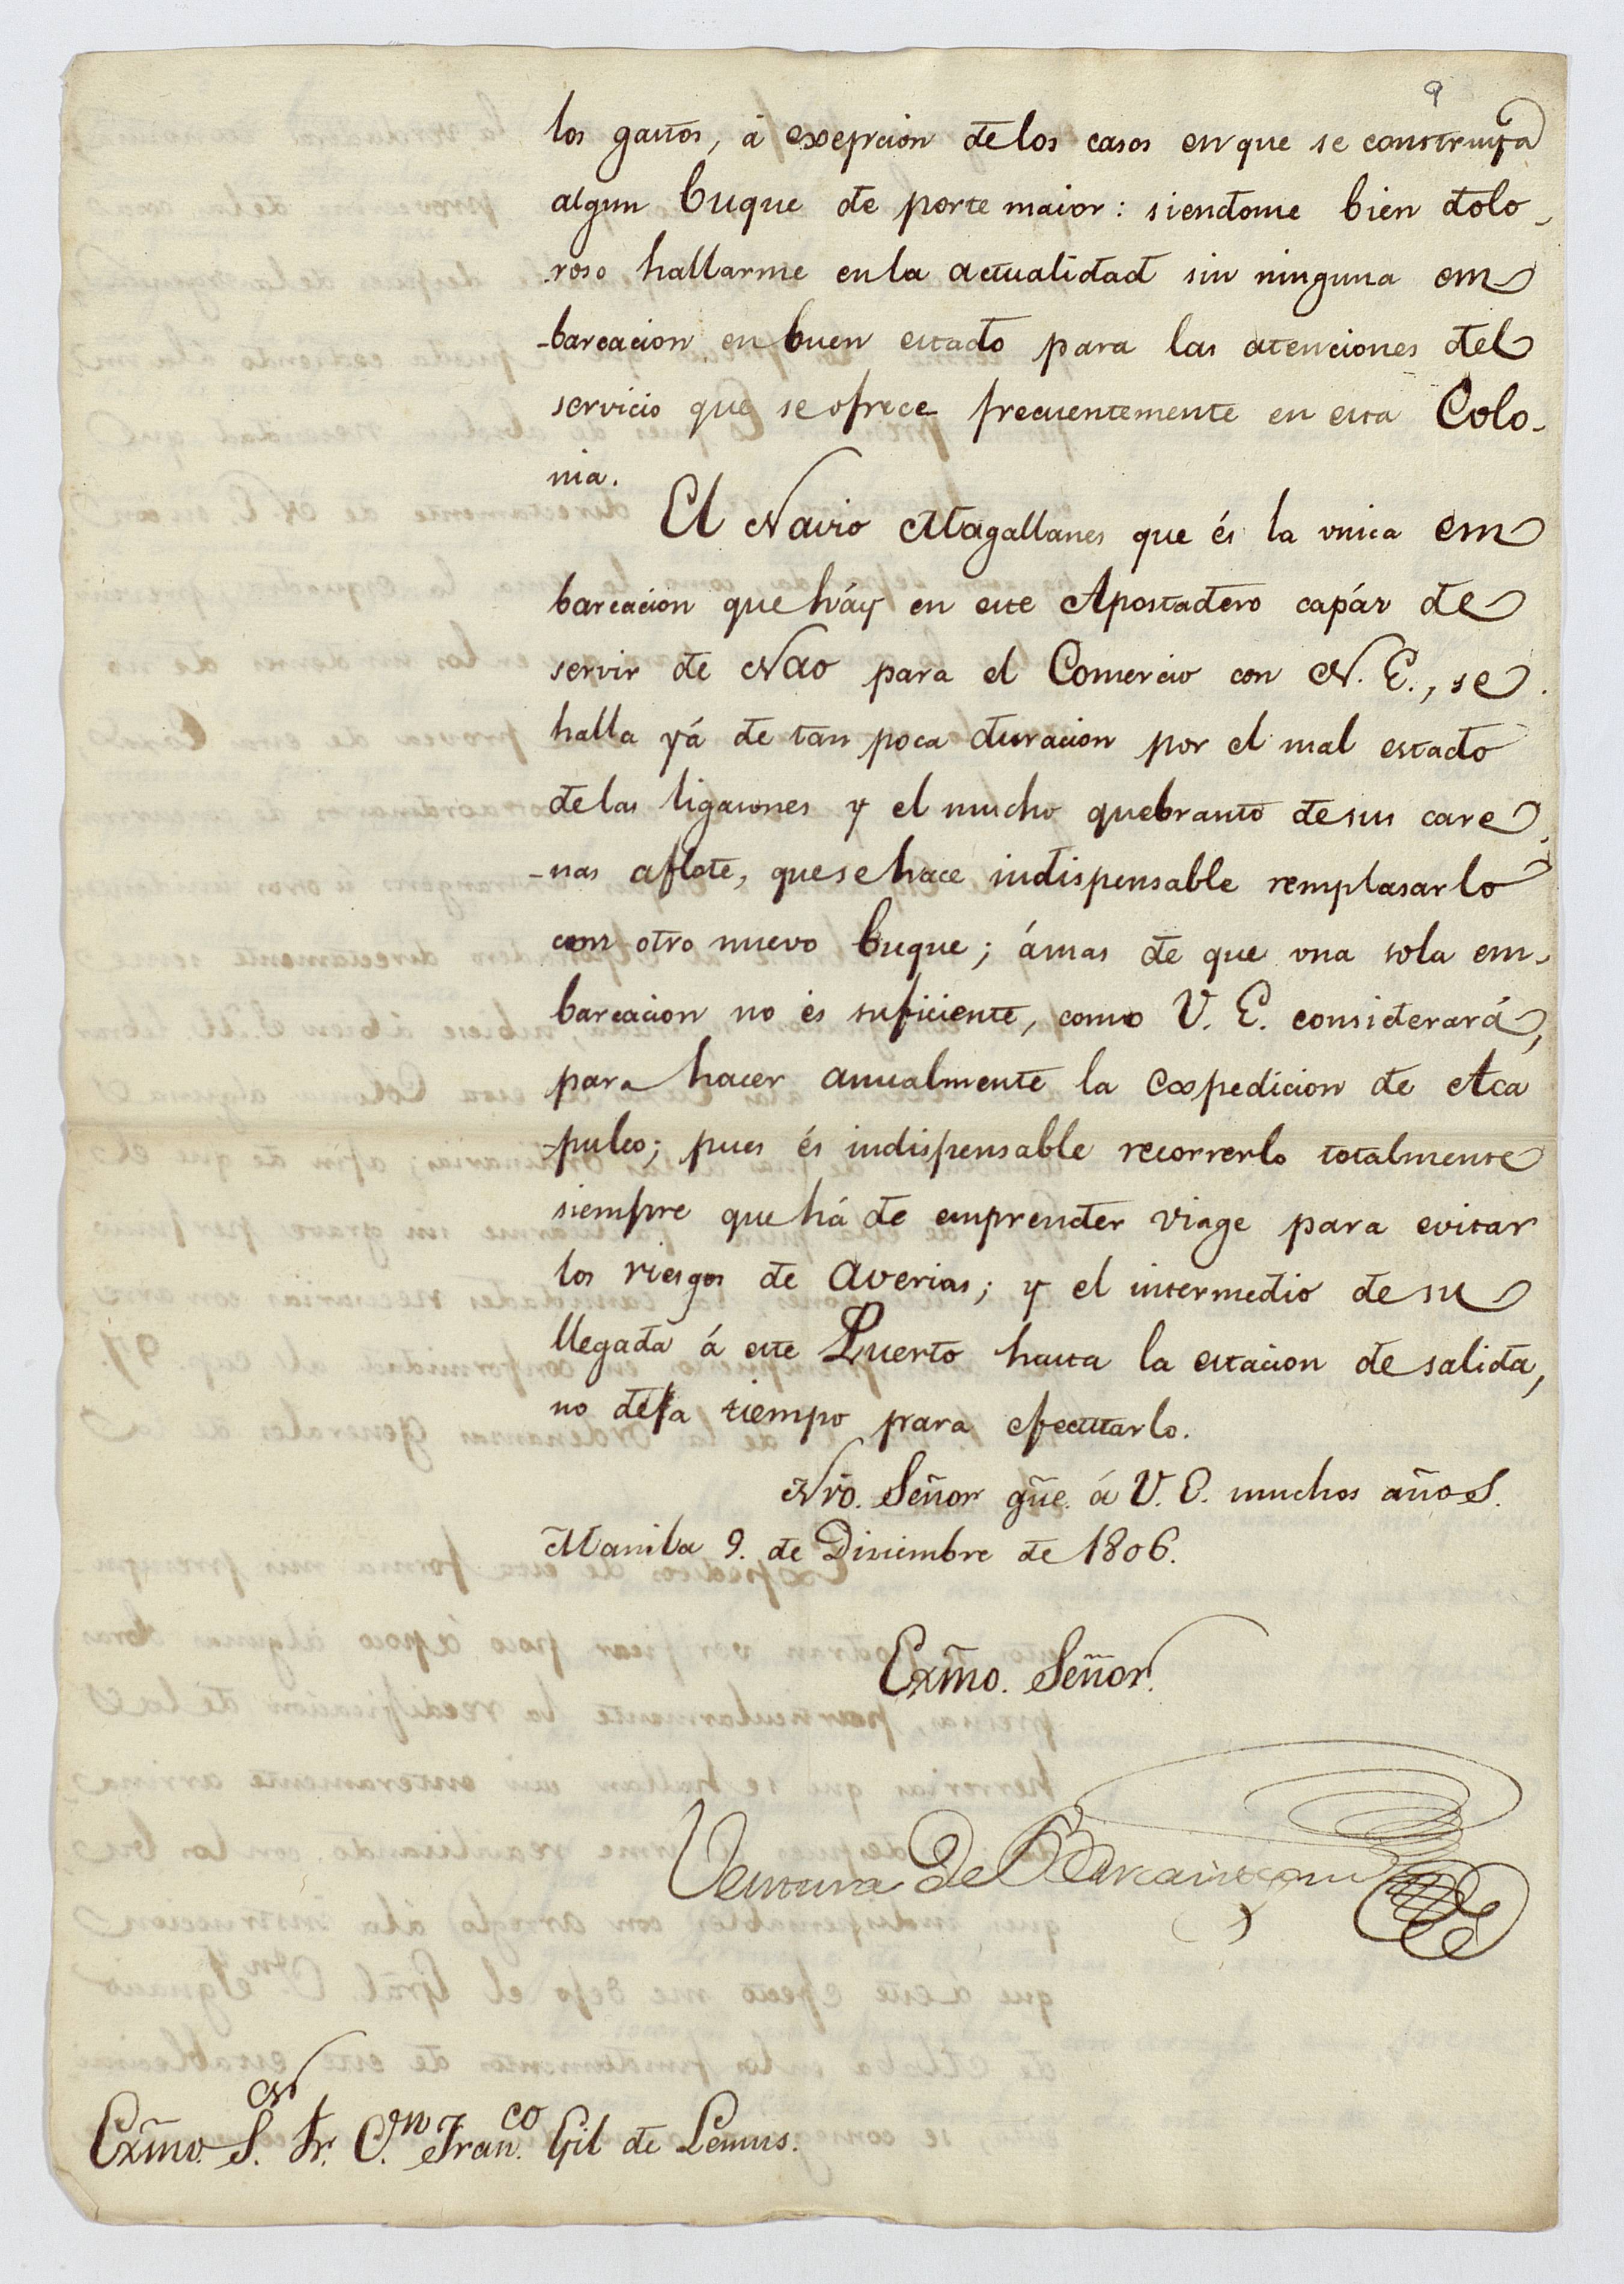 9
los gastos, á exepcion de los casos en que se construya
algun buque de porte maior: siendome bien dolo-
-roso hallarme en la actualidad sin ninguna em
-barcacion en buen estado para las atenciones del
servicio que se ofrece frecuentemente en esta Colo-
nia.
El Navio Magallanes que és la vnica em
barcacion que háy en este Apostadero capáz de
servir de Nao para el Comercio con N. E., se
halla yá de tan poca duracion por el mal estado
de las ligasones y el mucho quebranto de sus care
-nas aflote, que se hace indispensable remplasarlo
con otro nuevo buque; ámas de que vna sola em-
barcacion no és suficiente, como V. E. considerará,
para hacer anualmente la expedicion de Aca
-pulco; pues és indispensable recorrerlo totalmente
siempre que há de emprender viage para evitar
los riesgos de averias; y el intermedio de su
llegada á este Puerto hasta la estacion de salida,
no deja tiempo para efecutarlo.
Nrõ. Señor gũe. á V. E. muchos años.
Manila 9. de Diciembre de 1806.
Exm̃o. Señor.
Ventura de Barcaiztegui
Exm̃o. S.or Fr. D.n Fran.co Gil de Lemus.